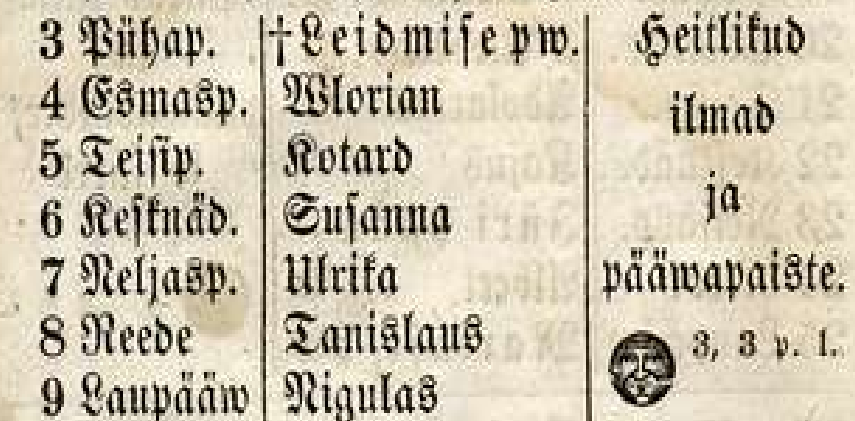 3 Pühap. † Leidmise pw. Heitlikud
4 Esmasp. Wlorian ilmad
5 Teisip. Kotard ja
6 Kesknäd. Susanna
7 Neljasp. Ulrika pääwapaiste.
8 Reede Tanislaus 3, 3 p. l.
9 Laupääw Nigulas